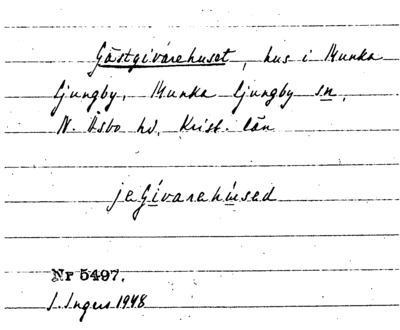 Gästgivarehuset, hus i Munka
Ljungby, Munka Ljungby sn,
N. Åsbo hd, Krist. län
jeGívarehúsed
Nr 5497.
I. Ingers 1948